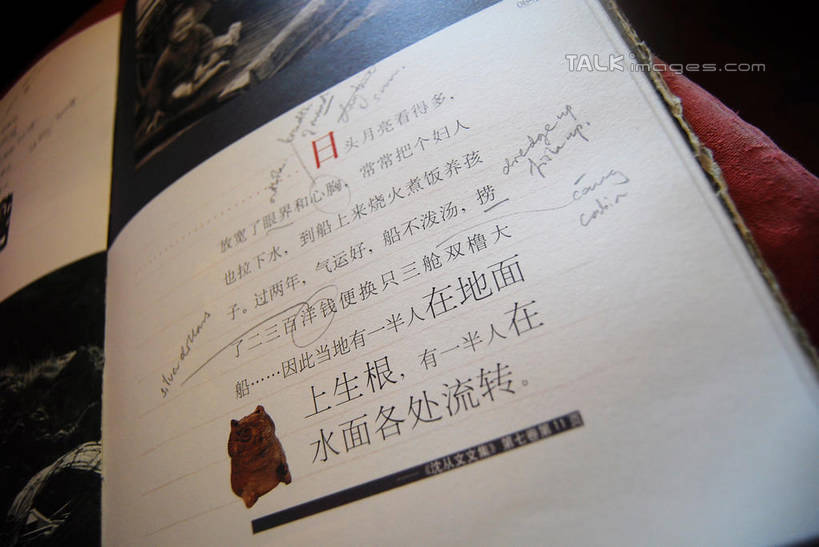 TALKimages.com
日头月亮看得多，
放宽了眼界和心胸，常常把个妇人
也拉下水，到船上来烧火煮饭养孩
子。过两年，气运好，船不泼汤，捞
了二三百洋钱便换只三舱双橹大
船……因此当地有一半人在地面
上生根，有一半人在
水面各处流转。
——《沈从文文集》第七卷第11页
dredge up
fish up.
silver dollars